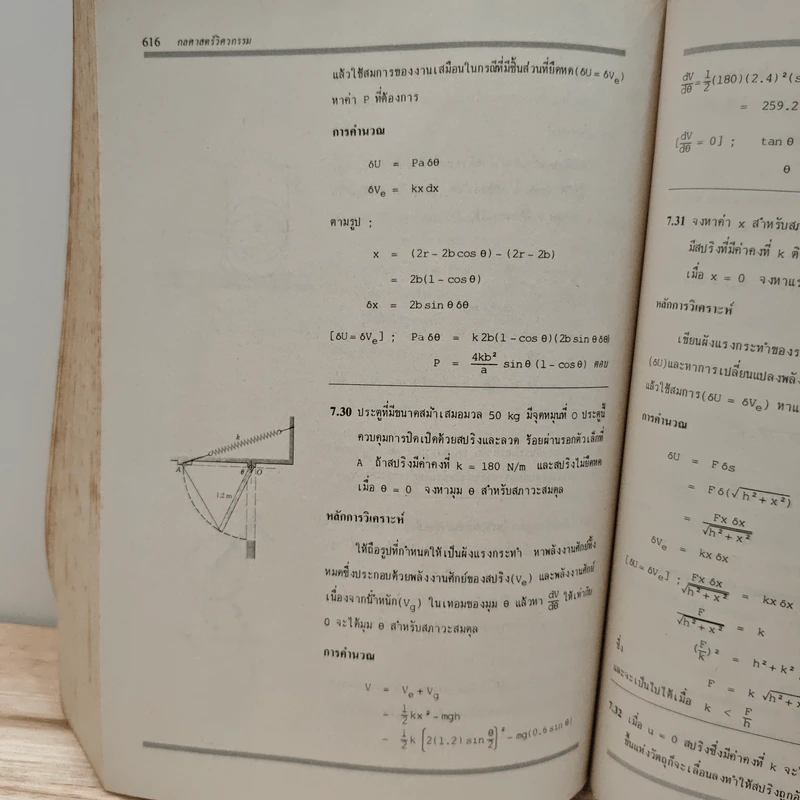 616 กลศาสตร์วิศวกรรม
แล้วใช้สมการของงานเสมือนในกรณีที่มีชิ้นส่วนที่ยืดหด(δU = δVe)
หาค่า P ที่ต้องการ
การคำนวณ
δU = Pa δθ
δVe = kx dx
ตามรูป ;
x = (2r - 2b cos θ) - (2r - 2b)
= 2b(1 - cos θ)
δx = 2b sin θ δθ
[δU = δVe] ; Pa δθ = k 2b(1 - cos θ)(2b sin θ δθ)
P = 4kb²/a sin θ (1 - cos θ) ตอบ
7.30 ประตูที่มีขนาดสม่ำเสมอมวล 50 kg มีจุดหมุนที่ O ประตูนี้
ควบคุมการปิดเปิดด้วยสปริงและลวด ร้อยผ่านรอกตัวเล็กที่
A ถ้าสปริงมีค่าคงที่ k = 180 N/m และสปริงไม่ยืดหด
เมื่อ θ = 0 จงหามุม θ สำหรับสภาวะสมดุล
k
A
θ
O
1.2 m
หลักการวิเคราะห์
ให้ถือรูปที่กำหนดให้เป็นผังแรงกระทำ หาพลังงานศักย์ทั้ง
หมดซึ่งประกอบด้วยพลังงานศักย์ของสปริง(Ve) และพลังงานศักย์
เนื่องจากน้ำหนัก(Vg) ในเทอมของมุม θ แล้วหา dV/dθ ให้เท่ากับ
0 จะได้มุม θ สำหรับสภาวะสมดุล
การคำนวณ
V = Ve + Vg
= 1/2 kx² - mgh
= 1/2 k [2(1.2) sin θ/2]² - mg(0.6 sin θ)
dV/dθ = 1/2 (180)(2.4)²(s
= 259.2
[dV/dθ = 0] ; tan θ
θ
7.31 จงหาค่า x สำหรับสภ
มีสปริงที่มีค่าคงที่ k
เมื่อ x = 0 จงหาแร
หลักการวิเคราะห์
เขียนผังแรงกระทำของร
(δU)และหาการเปลี่ยนแปลงพลัง
แล้วใช้สมการ(δU = δVe) หาแ
การคำนวณ
δU = F δs
= F δ(√h² + x²)
= Fx δx/√h² + x²
δVe = kx δx
[δU = δVe] ; Fx δx/√h² + x² = kx δx
F/√h² + x² = k
ซึ่ง (F/k)² = h² + x²
F = k √h² + x
และจะเป็นไปได้เมื่อ k < F/h
7.32 เมื่อ u = 0 สปริงซึ่งมีค่าคงที่ k จะ
ชิ้นแท่งวัตถุก็จะเลื่อนลงทำให้สปริงถูกอ